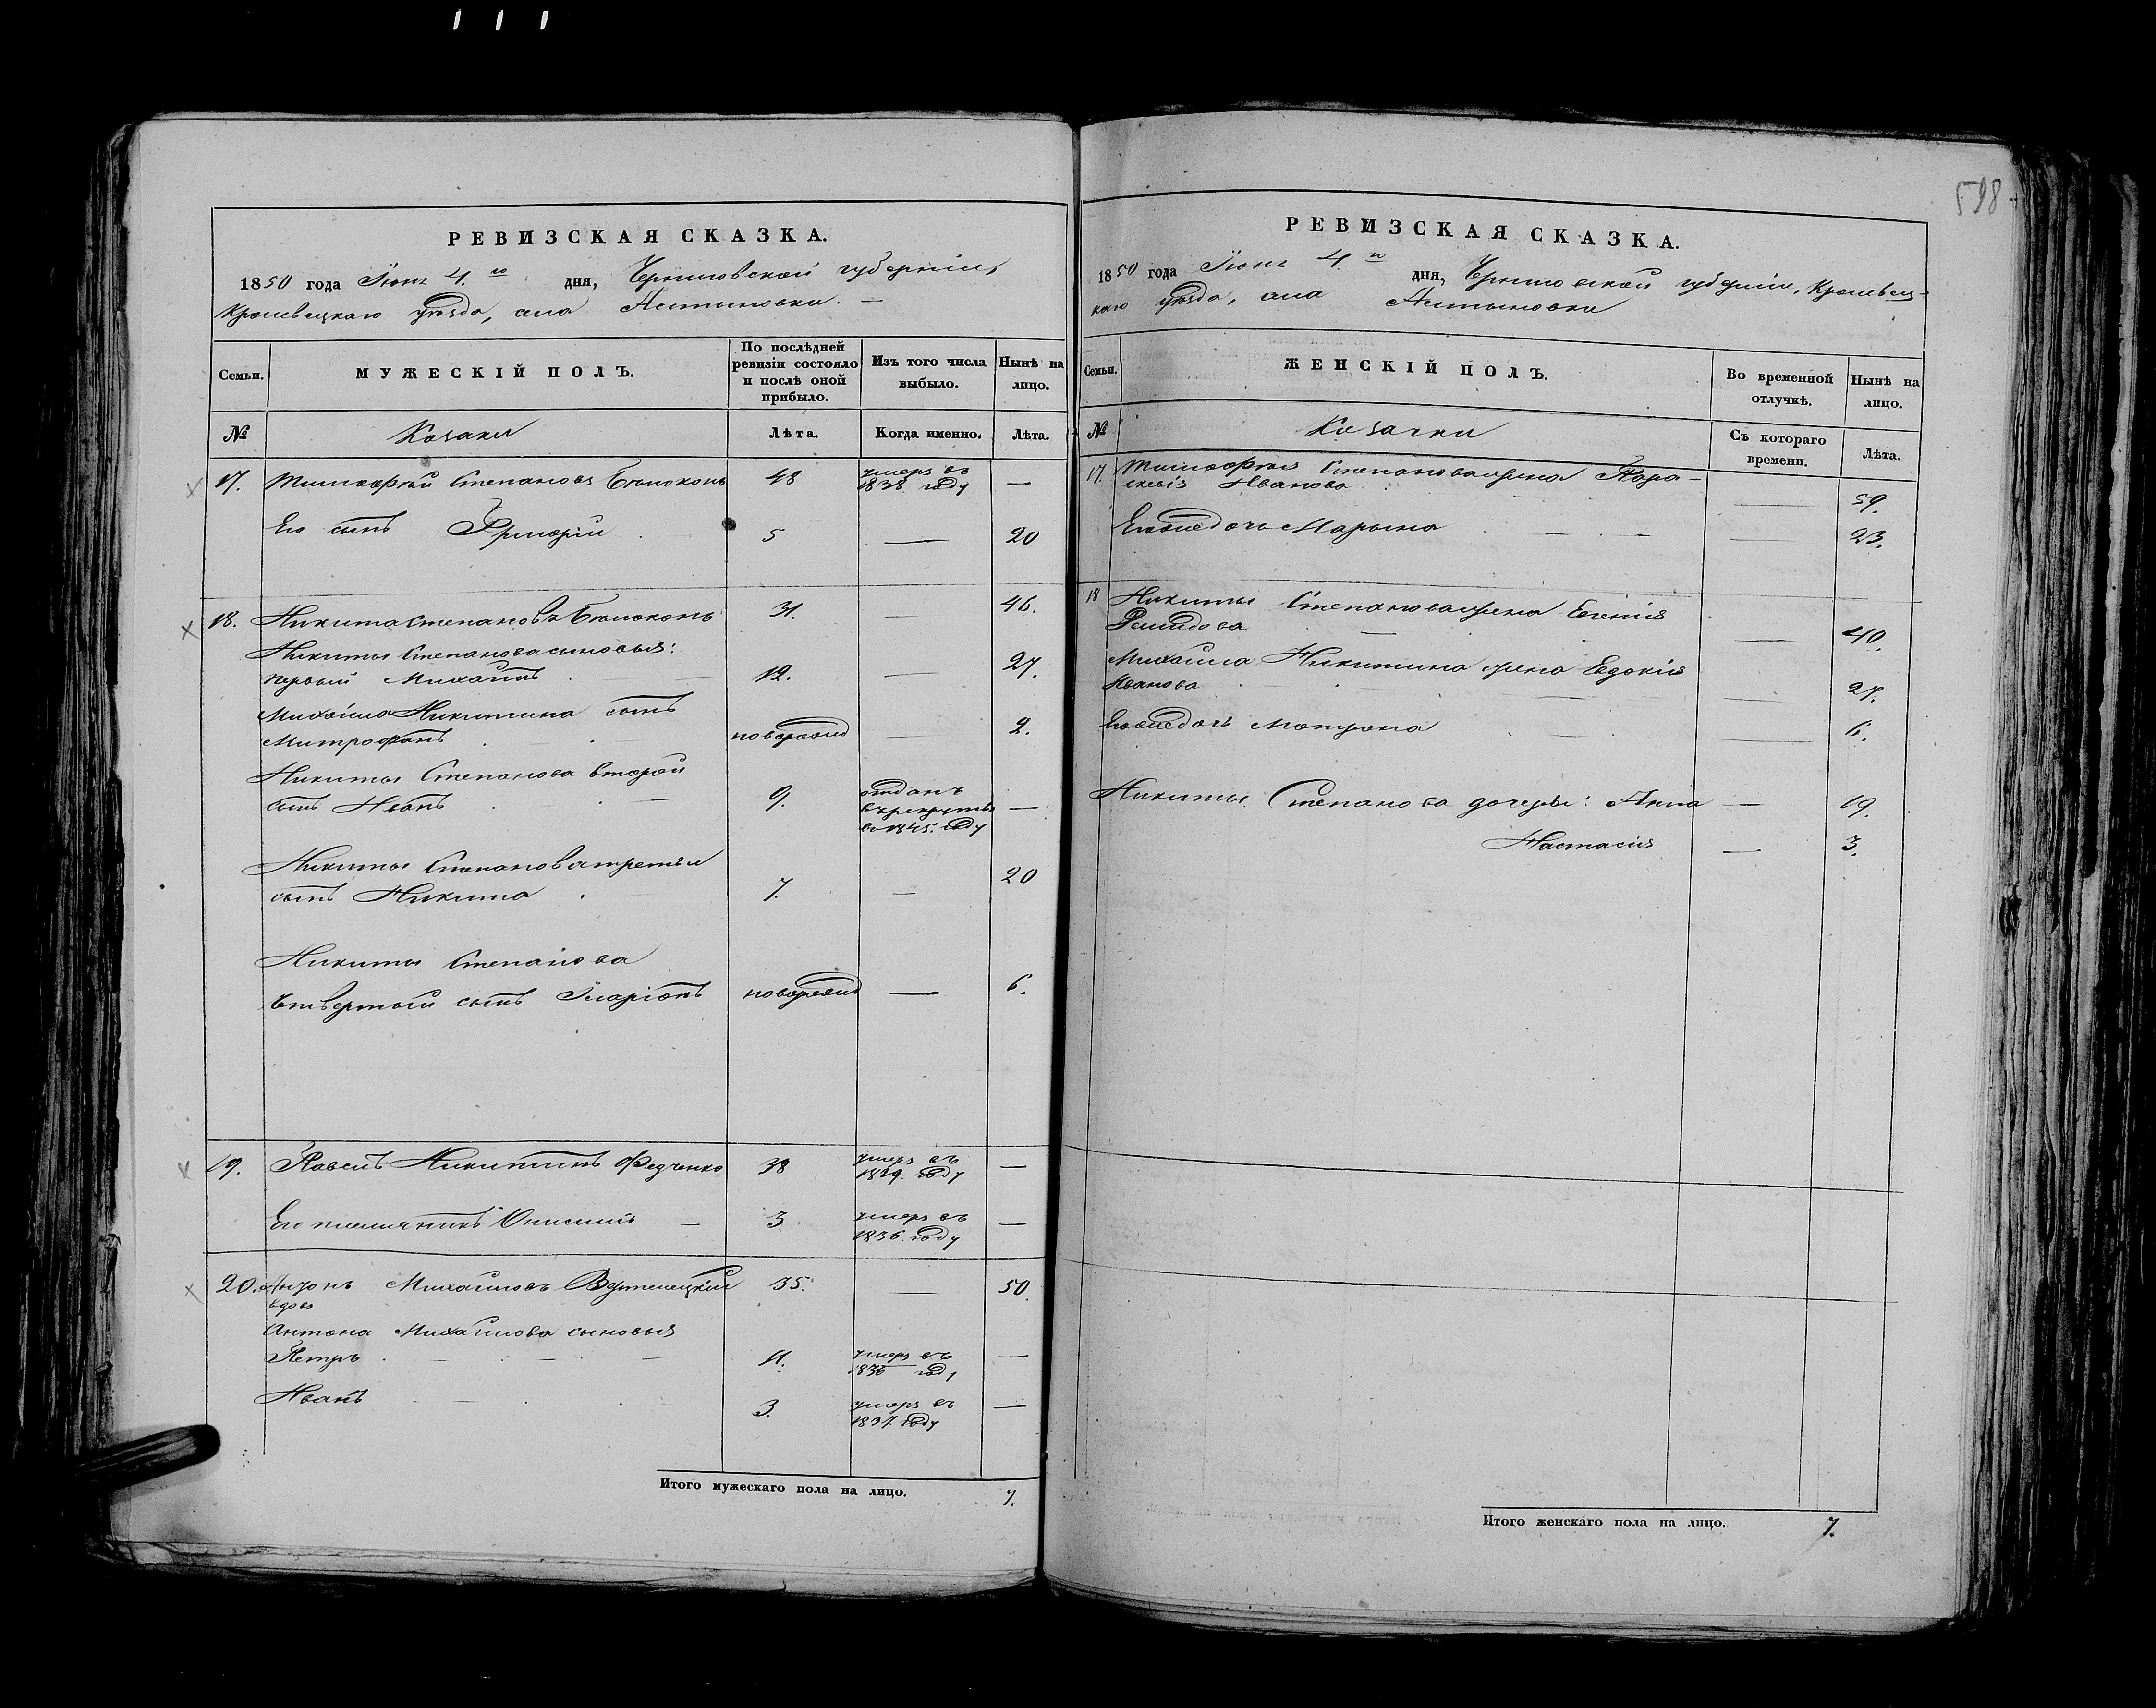 598
РЕВИЗСКАЯ СКАЗКА.
1850 года Іюня 4.го дня, Черниговской губерніи,
Кролевецкаго уѣзда, села
Семьи.
МУЖЕСКІЙ ПОЛЪ.
По послѣдней ревизіи состояло и послѣ оной прибыло.
Изъ того числа выбыло.
Нынѣ на лицо.
№ Козаки Лѣта. Когда именно. Лѣта.
17. Тимофѣй Степановъ Бѣлоконь 48 умеръ въ 1838 году —
Его сынъ Григорій 5 — 20
18. Никита Степановъ Бѣлоконь 31. — 46.
Никиты Степанова сыновья:
первый Михаилъ 12. — 27.
Михаила Никитина сынъ
Митрофанъ новорожд — 2.
Никиты Степанова второй
сынъ Иванъ 9. отданъ въ рекруты въ 1845. году —
Никиты Степанова третьи
сынъ Никита 7. — 20
Никиты Степанова
четвертый сынъ Иларіонъ новорожд — 6.
19. Павелъ Никитинъ Федченко 38 умеръ въ 1839. году —
Его племянникъ Онисимъ — 3 умеръ въ 1836. году —
20. Антонъ Михайловъ 35. — 50.
вдовъ
Антона Михайлова сыновья
Петръ 11. умеръ въ 1836 году —
Иванъ 3. умеръ въ 1837. году —
Итого мужескаго пола на лицо. 7.
РЕВИЗСКАЯ СКАЗКА.
1850 года Іюня 4.го дня, Черниговской губерніи, Кролевец-
каго уѣзда, села
Семьи.
ЖЕНСКІЙ ПОЛЪ.
Во временной отлучкѣ.
Нынѣ на лицо.
№ Козачки Съ котораго времени. Лѣта.
17. Тимофѣя Степанова жена Пара-
скевія Иванова — 59.
Его же дочь Марына — 23.
18 Никиты Степанова жена Евгенія
— 40.
Михаила Никитина жена Евдокія
Иванова — 27.
Его же дочь Матрона — 6.
Никиты Степанова дочери: Анна — 19.
Настасія — 3.
Итого женскаго пола на лицо. 7.